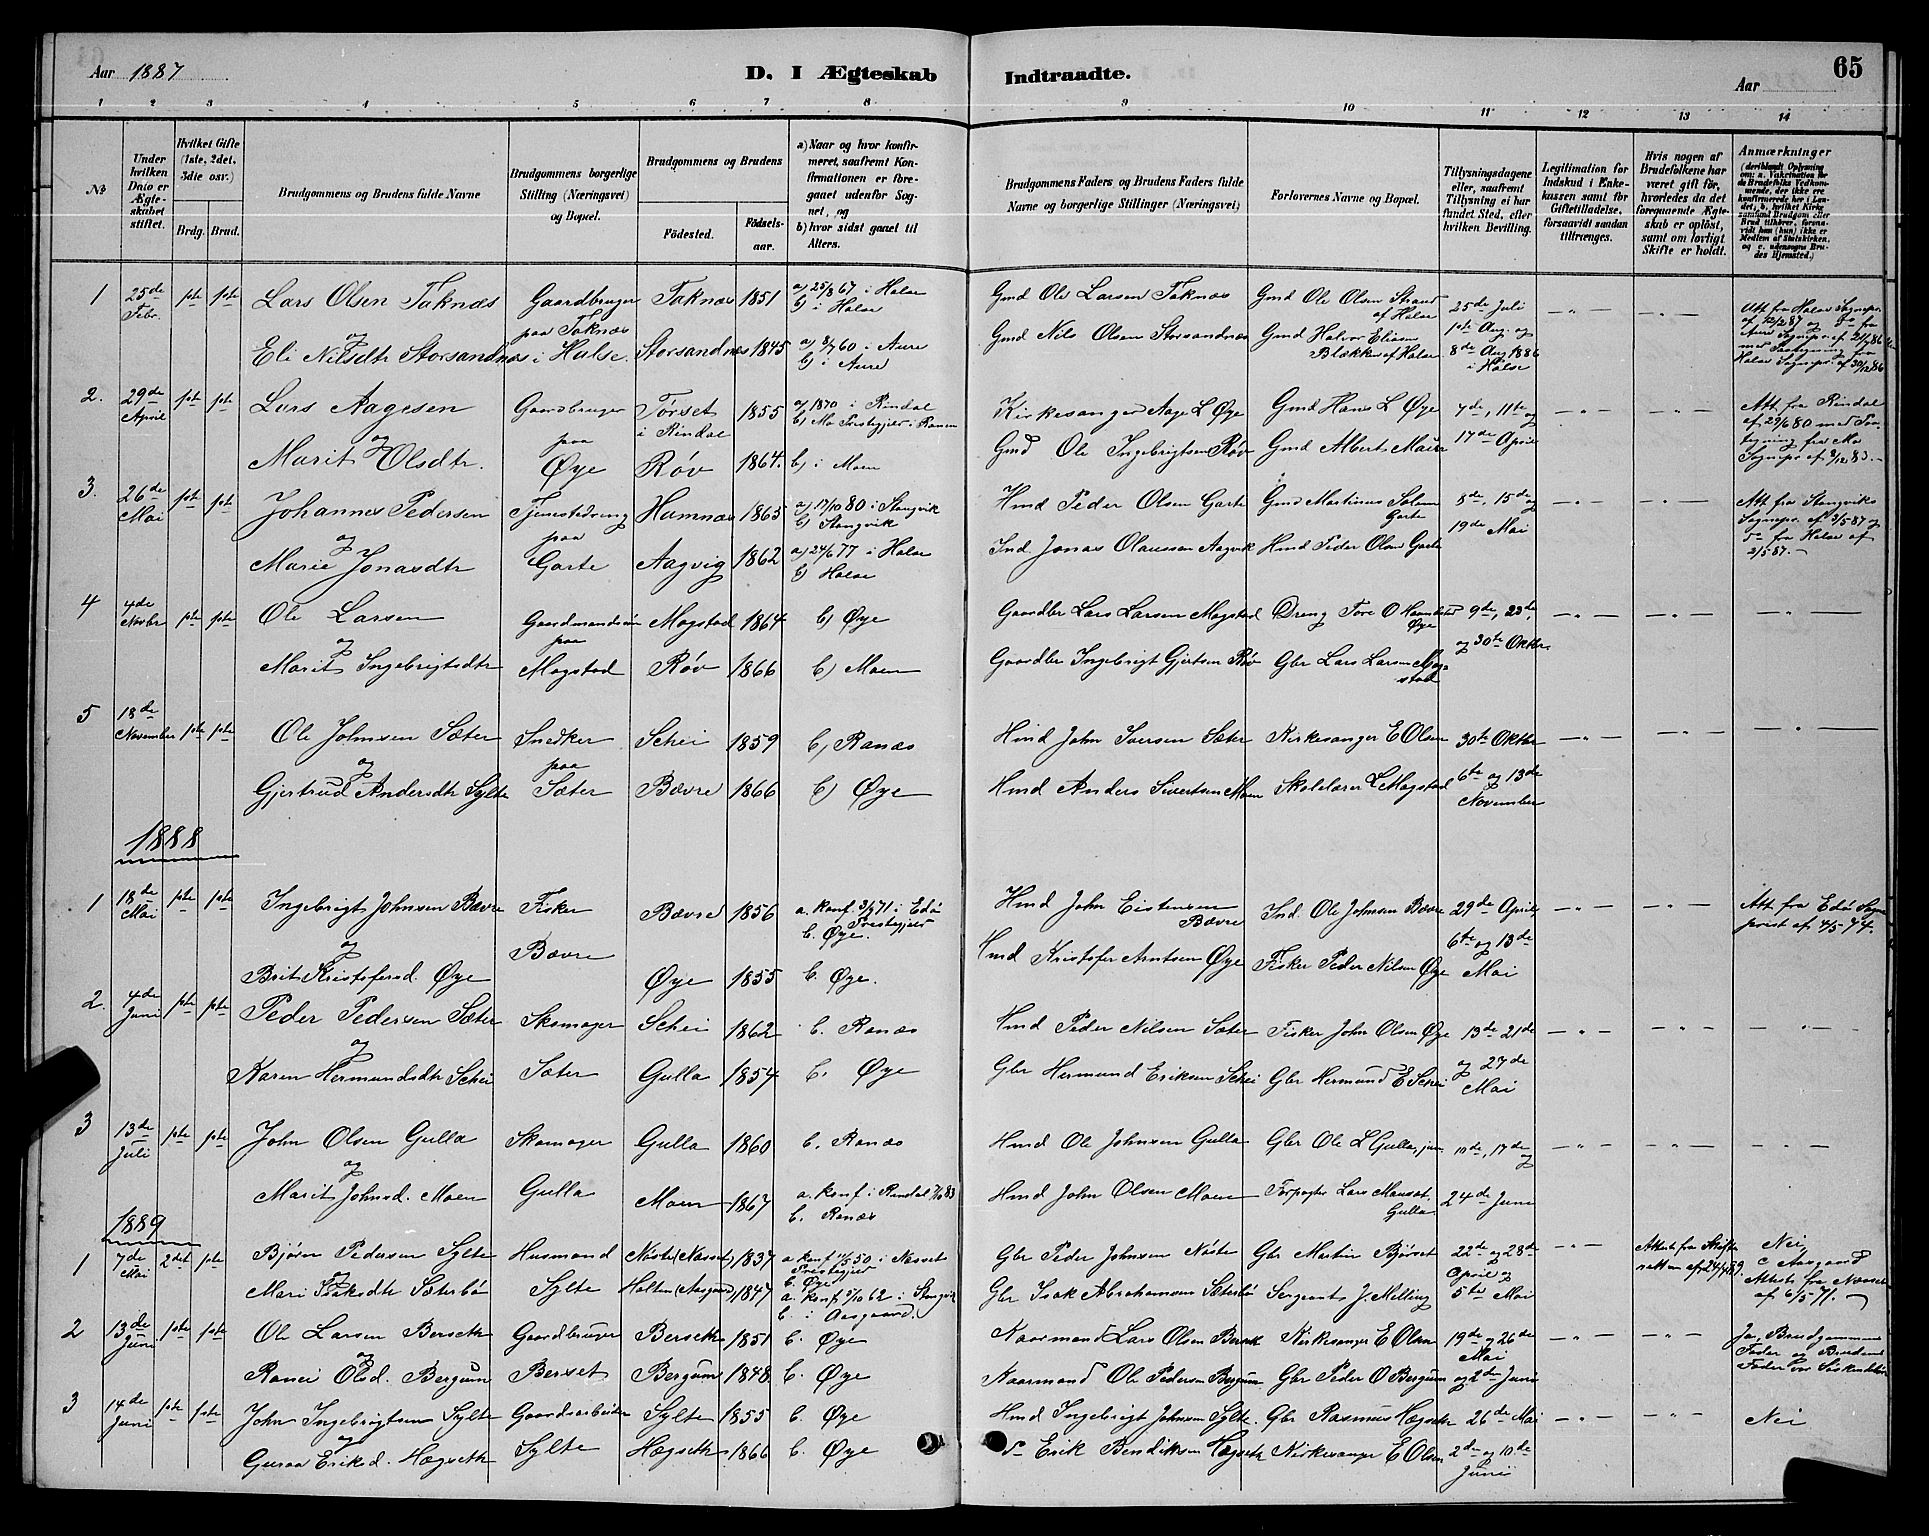 Aar 1887
D. I Ægteskab Indtraadte.
65
Aar
1 2 3 4 5 6 7 8 9 10 11 12 13 14
№
Under hvilken Dato er Ægteskabet stiftet.
Hvilket Gifte (1ste, 2det, 3die osv.)
Brdg. Brud.
Brudgommens og Brudens fulde Navne
Brudgommens borgerlige Stilling (Næringsvei) og Bopæl.
Brudgommens og Brudens
Fødested.
Fødselsaar.
a) Naar og hvor konfirmeret, saafremt Konfirmationen er foregaaet udenfor Sognet, og
b) hvor sidst gaaet til Alters.
Brudgommens Faders og Brudens Faders fulde Navne og borgerlige Stillinger (Næringsvei)
Forlovernes Navne og Bopæl.
Tillysningsdagene eller, saafremt Tillysning ei har fundet Sted, efter hvilken Bevilling.
Legitimation for Indskud i Enkekassen samt for Giftetilladelse, forsaavidt saadan tiltrænges.
Hvis nogen af Brudefolkene har været gift før, hvorledes da det foregaaende Ægteskab er opløst, samt om lovligt Skifte er holdt.
Anmærkninger
1 25de Febr. 1ste 1ste Lars Olsen Taknæs Gaardbruger Taknæs 1851 a) 25/8 67 i Halse b) i Halse Gmd Ole Larsen Taknæs Gmd Ole Olsen Strand af Halse 25de Juli
og paa Taknæs 1ste Aug. og
Eli Nilsdtr Storsandnæs i Halse. Storsandnæs 1845 a) 8/7 60 i Aure b) i Aure Gmd Nils Olsen Storsandnæs Gmd Halvor Eliasen Blekken af Halse 8de Aug 1886 i Halse
2. 29de April 1ste 1ste Lars Aagesen Gaardbruger Tørset i Rindal 1855 a) 1870 i Rindal b) Mo Præstegjeld i Ranen Kirkesanger Aage L Øye Gmd Hans L Øye 7de, 11te og
og paa
Marit Olsdtr. Øye Røv 1864. b) i Moen Gmd Ole Ingebrigtsen Røv Gmd Albert Moen 17de April
Att. fra Rindal af 27/6 80 med
Sognepr. af 3/12 83.
3. 26de Mai 1ste 1ste Johannes Pedersen Tjenestedreng Hamnæs 1863 a) 17/10 80 i Stangvik b) Stangvik Hmd Peder Olsen Garte Gmd Martinus Garte 8de, 15de og
og paa
Marie Jonasdtr Garte Aagvig 1862 a) 24/6 77 i Halse b) Halse Ind. Jonas Olaussen Aagvik Hmd Peder Olsen Garte 19de Mai
Att. fra Stangviks Sognepr. af 3/5 87 og Do fra Halse af 2/5 87.
4 4de Novbr 1ste 1ste Ole Larsen Gaardmandssøn Mogstad 1864 b) Øye Gaardbr Lars Larsen Mogstad Dreng Tore O Øye 9de, 23de,
og paa
Marit Ingebrigtsdtr Mogstad Røv 1866 b) Moen Gaardbr Ingebrigt Gjertsen Røv Gbr Lars Larsen Mogstad og 30te Oktbr.
5 18de November 1ste 1ste Ole Johnsen Sæter Snedker Schei 1859 b) Ranæs Hmd John Iversen Sæter Kirkesanger E Olsen 30te Oktbr
og paa
Gjertrud Andersdtr Sylte Sæter Bævre 1866 b) Øye Hmd Anders Sivertsen Moen Skolelærer L Mogstad 6te og 13de November
1888
1 18de Mai 1ste 1ste Ingebrigt Johnsen Bævre Fisker Bævre 1856 a. konf. 3/9 71 i Edø Præstegjeld b. Øye. Hmd John Eistensen Bævre Ind. Ole Johnsen Bævre 29de April
Att. fra Edø Sognepræst af 4/5 74.
og Bævre
Brit Kristofersd. Øye Øye 1855 b. Øye. Hmd Kristofer Arntsen Øye Fisker Peder Nilsen Øye 6te og 13de Mai
2. 4de Juni 1ste 1ste Peder Pedersen Sæter Skomager Schei 1862 b. Ranæs Hmd Peder Nilsen Sæter Fisker John Olsen Øye 13de 21de
og
Karen Hermundsdtr Schei Sæter Gulla 1854 b. Øye Gbr Hermund Eriksen Schei Gbr Hermund E Schei og 27de Mai
3 13de Juli 1ste 1ste John Olsen Gulla Skomager Gulla 1860 b. Ranæs Hmd Ole Johnsen Gulla Gbr Ole L Gulla, jun 10de, 17de og
og
Marit Johnsd. Moen Gulla Moen 1867 a. konf. i Rindal 83 b. Ranæs Hmd John Olsen Moen Forpagter Lars Gulla 24de Juni
1889
1 7de Mai 2det 1ste Bjørn Pedersen Sylte Husmand Nøste (Næsset) 1837 a. konf 50 i Næsset Præstegjeld b. Øye Gbr Peder Johnsen Nøste Gbr Martin Bjørset 22de og 28de April og Attest fra Skifteretten af 24/4 89. Nei,
og
Mari Isaksdtr Sæterbø Sylte Holten (Aasgaard) 1847 a. konf 5/10 62 i Stangvik b. i Aasgaard. Gbr Isak Abrahamsen Sæterbø Sergeant J. Melling 5te Mai c Aasgaard Attest fra Næsset af 6/5 71.
2 13de Juni 1ste 1ste Ole Larsen Berseth Gaardbruger Berseth 1851 b. Øye Kaarmand Lars Olsen Berseth Kirkesanger E Olsen 19de og 26de Mai Ja, Brudgommens Fader og Brudens Fader var Søskendebørn
og
Ranei Olsd. Bergum Berset Bergum 1848 b. Øye Kaarmand Ole Pedersen Bergum Gbr Peder O Bergum og 2de Juni
3 14de Juni 1ste 1ste John Ingebrigtsen Sylte Gaardsarbeider Sylte 1855 b. Øye Hmd Ingebrigt Johnsen Sylte. Gbr Rasmus Hægseth 26de Mai Nei
og
Guraa Eriksd. Hægseth Sylte Hægseth 1866 b. Øye Do Erik Bendiksen Hægseth Kirkesanger E Olsen 2de og 10de Juni